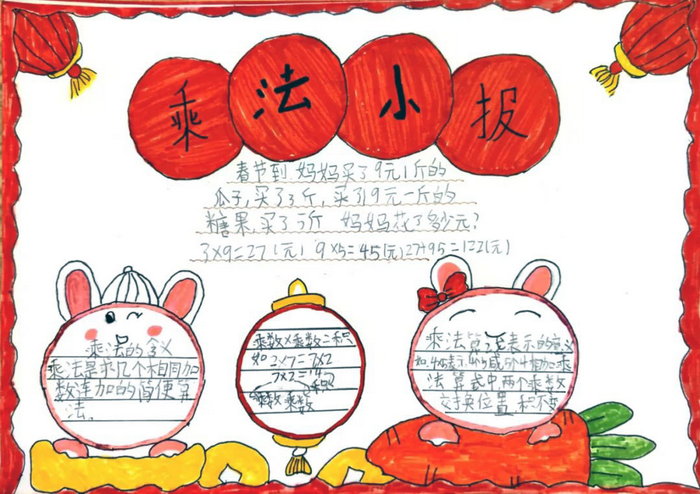 乘法小报
春节到妈妈买了9元1斤的
瓜子,买了3斤,买了19元一斤的
糖果,买了5斤 妈妈花了多少元?
3×9=27(元) 9×5=45(元)27+95=122(元)
乘法的含义
乘法是求几个相同加
数连加的简便算
法。
乘数×乘数=积
如2×7=7×2
7×2=14
积
乘数 乘数
乘法算式表示的意义
如4×5表示4个5或5个4相加乘
法算式中两个乘数
交换位置 积不变